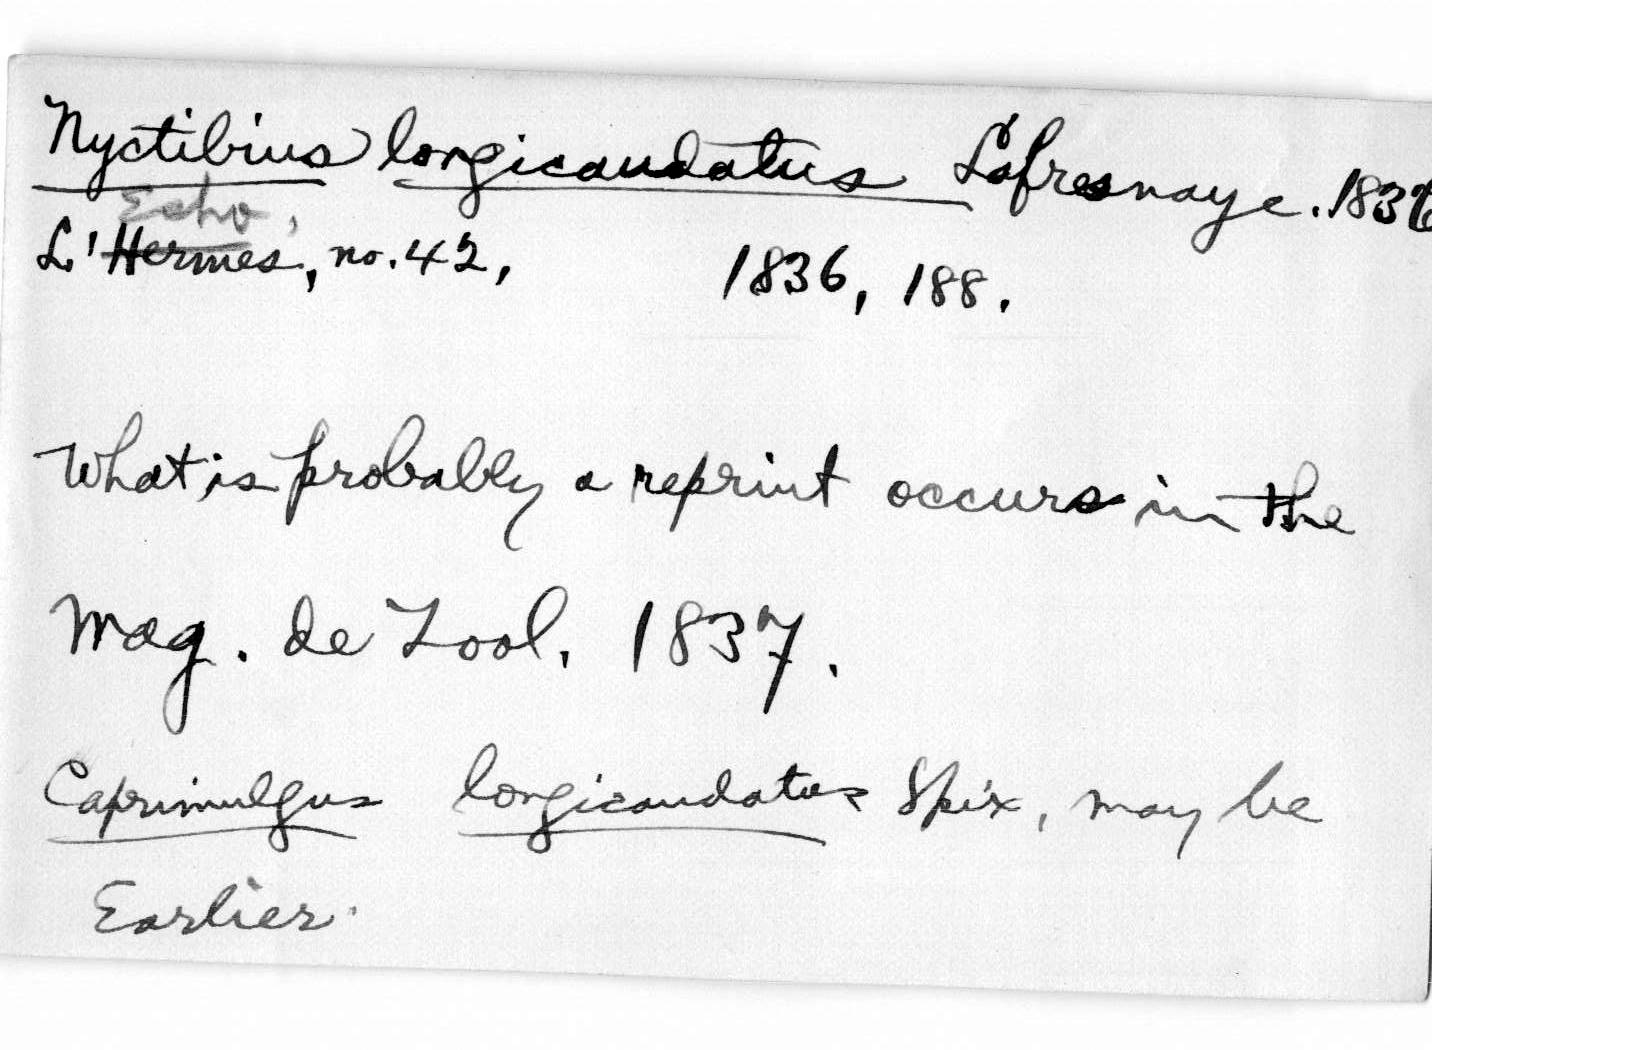 Nyctibius longicaudatus Lafresnaye. 1836
Echo,
L'Hermes, no. 42, 1836, 188.
What is probably a reprint occurs in the
Mag. de Zool. 1837.
Caprimulgus longicaudatus Spix, may be
Earlier.